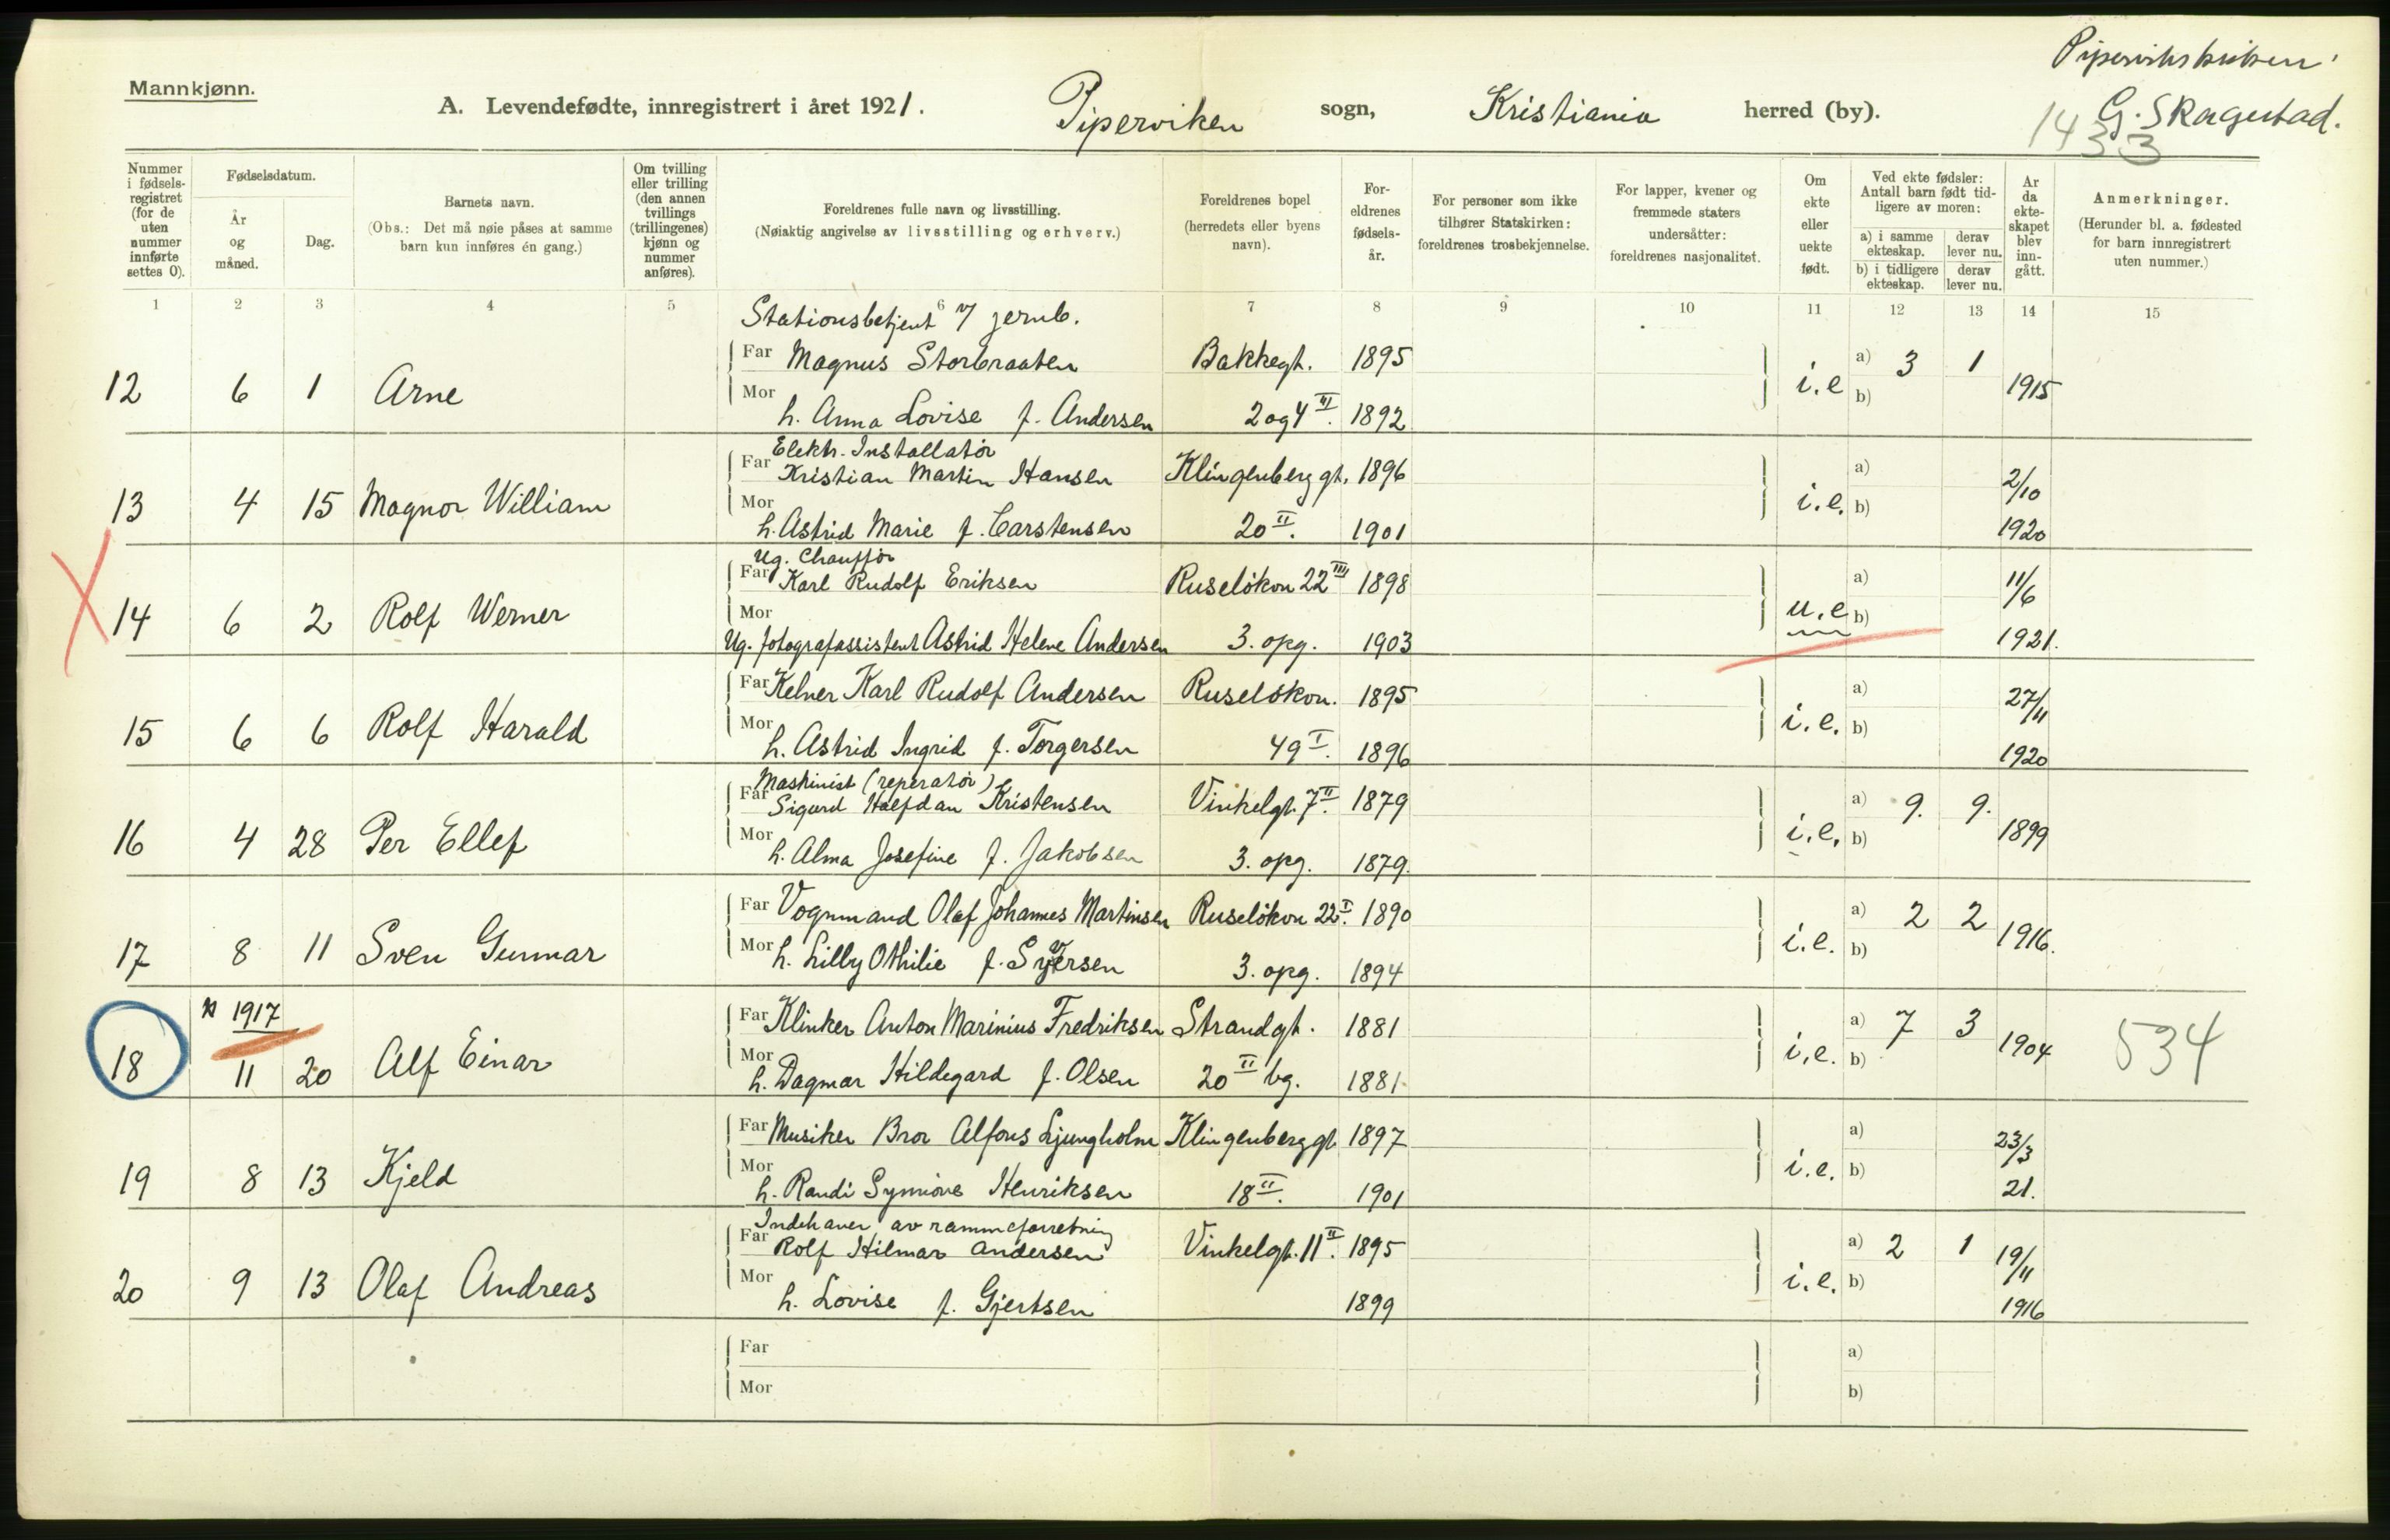 Mannkjønn.
A. Levendefødte, innregistrert i året 1921. Piperviken sogn, Kristiania herred (by).
G. Skagestad.
1433
Nummer i fødsels-registret (for de uten nummer innførte settes 0).
Fødselsdatum.
År og måned.
Dag.
Barnets navn.
(Obs.: Det må nøie påses at samme barn kun innføres én gang.)
Om tvilling eller trilling (den annen tvillings (trillingenes) kjønn og nummer anføres).
Foreldrenes fulle navn og livsstilling.
(Nøiaktig angivelse av livsstilling og erhverv.)
Foreldrenes bopel (herredets eller byens navn).
For-eldrenes fødsels-år.
For personer som ikke tilhører Statskirken: foreldrenes trosbekjennelse.
For lapper, kvener og fremmede staters undersåtter: foreldrenes nasjonalitet.
Om ekte eller uekte født.
Ved ekte fødsler: Antall barn født tid-ligere av moren:
a) i samme ekteskap. derav lever nu.
b) i tidligere ekteskap. derav lever nu.
År da ekte-skapet blev inn-gått.
Anmerkninger.
(Herunder bl. a. fødested for barn innregistrert uten nummer.)
1 2 3 4 5 6 7 8 9 10 11 12 13 14 15
Stationsbetjent v/ jernb.
Far Magnus Storbraaten Bakkegt. 1895 a) 3 1
12 6 1 Arne i.e 1915
Mor h. Anna Lovise f. Andersen 2og4 II. 1892 b)
Elektr. Installatør
Far Kristian Martin Hansen Klingenberggt. 1896 a) 2/10
13 4 15 Magnor William i.e.
Mor h. Astrid Marie f. Carstensen 20 II. 1901 b) 1920
Ug. Chauffør
Far Karl Rudolf Eriksen Ruseløkvn 22 III 1898 a) 11/6
14 6 2 Rolf Werner u.e
Mor Ug. fotografassistent Astrid Helene Andersen 3. opg. 1903 b) 1921.
Far Kelner Karl Rudolf Andersen Ruseløkvn. 1895 a) 27/11
15 6 6 Rolf Harald i.e.
Mor h. Astrid Ingrid f. Torgersen 49 I. 1896 b) 1920
Maskinist (reperatør)
Far Sigurd Halfdan Kristensen Vinkelgt. 7 II. 1879 a) 9. 9.
16 4 28 Per Ellef i.e. 1899
Mor h. Alma Josefine f. Jakobsen 3. opg. 1879. b)
Far Vognmand Olaf Johannes Martinsen Ruseløkvn 22 I. 1890 a) 2 2
17 8 11 Sven Gunnar i.e. 1916.
Mor h. Lilly Othilie f. Syversen 3. opg. 1894 b)
1917
Far Klinker Anton Marinius Fredriksen Strandgt. 1881 a) 7 3
18 11 20 Alf Einar i.e. 1904 534
Mor h. Dagmar Hildegard f. Olsen 20 II bg. 1881. b)
Far Musiker Bror Alfons Ljungholm Klingenberggt 1897 a) 23/3
19 8 13 Kjeld i.e.
Mor h. Randi Synnøve Henriksen 18 II. 1901 b) 21.
Indehaver av rammeforretning
Far Rolf Hilmar Andersen Vinkelgt. 11 II. 1895 a) 2 1 19/11
20 9 13 Olaf Andreas i.e.
Mor h. Lovise f. Gjertsen 1899 b) 1916
Far a)
Mor b)